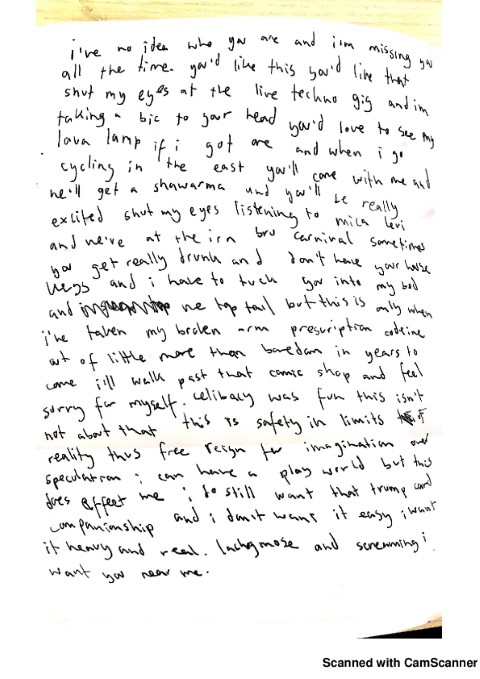 i've no idea who you are and i'm missing you
all the time. you'd like this you'd like that
shut my eyes at the live techno gig and im
taking a bic to your head you'd love to see my
lava lamp if i got one and when i go
cycling in the east you'll come with me and
we'll get a shawarma and you'll be really
excited shut my eyes listening to mica levi
and we're at the irn bru carnival sometimes
you get really drunk and don't have your house
keys and i have to tuck you into my bed
and we top tail but this is only when
i've taken my broken arm prescription codeine
out of little more than boredom in years to
come i'll walk past that comic shop and feel
sorry for myself. celibacy was fun this isn't
not about that this is safety in limits
reality thus free reign for imagination and
speculation i can have a play world but this
does effect me i do still want that trump card
companionship and i don't want it easy i want
it heavy and real. lachrymose and screaming i
want you near me.
Scanned with CamScanner